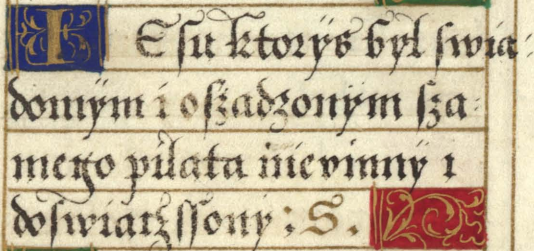 IEsu ktorys był swia:
domym i oszadzonym sza:
mego piłata nievinny i
doswiatzssony : S.